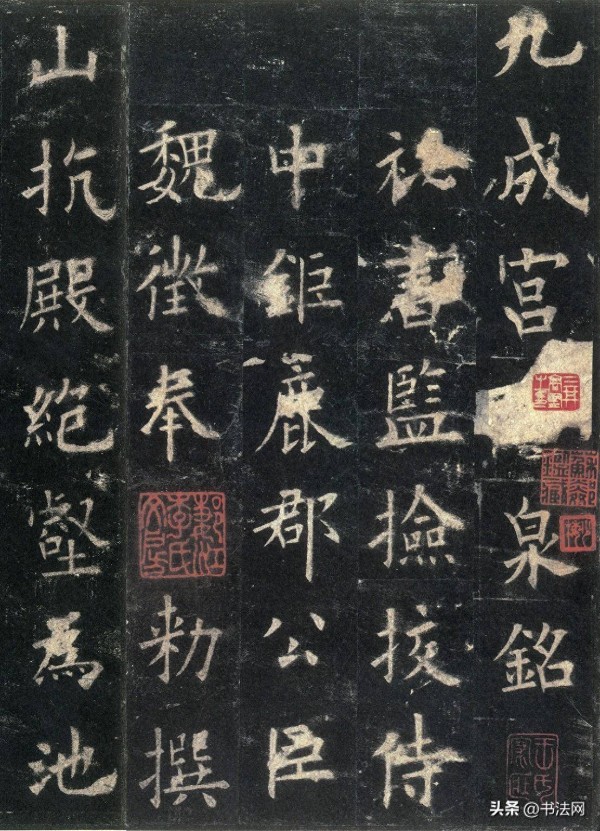 九成宮泉銘
祕書監撿挍侍
中鉅鹿郡公臣
魏徵奉
勑撰
山抗殿絕壑為池
头条 @书法网